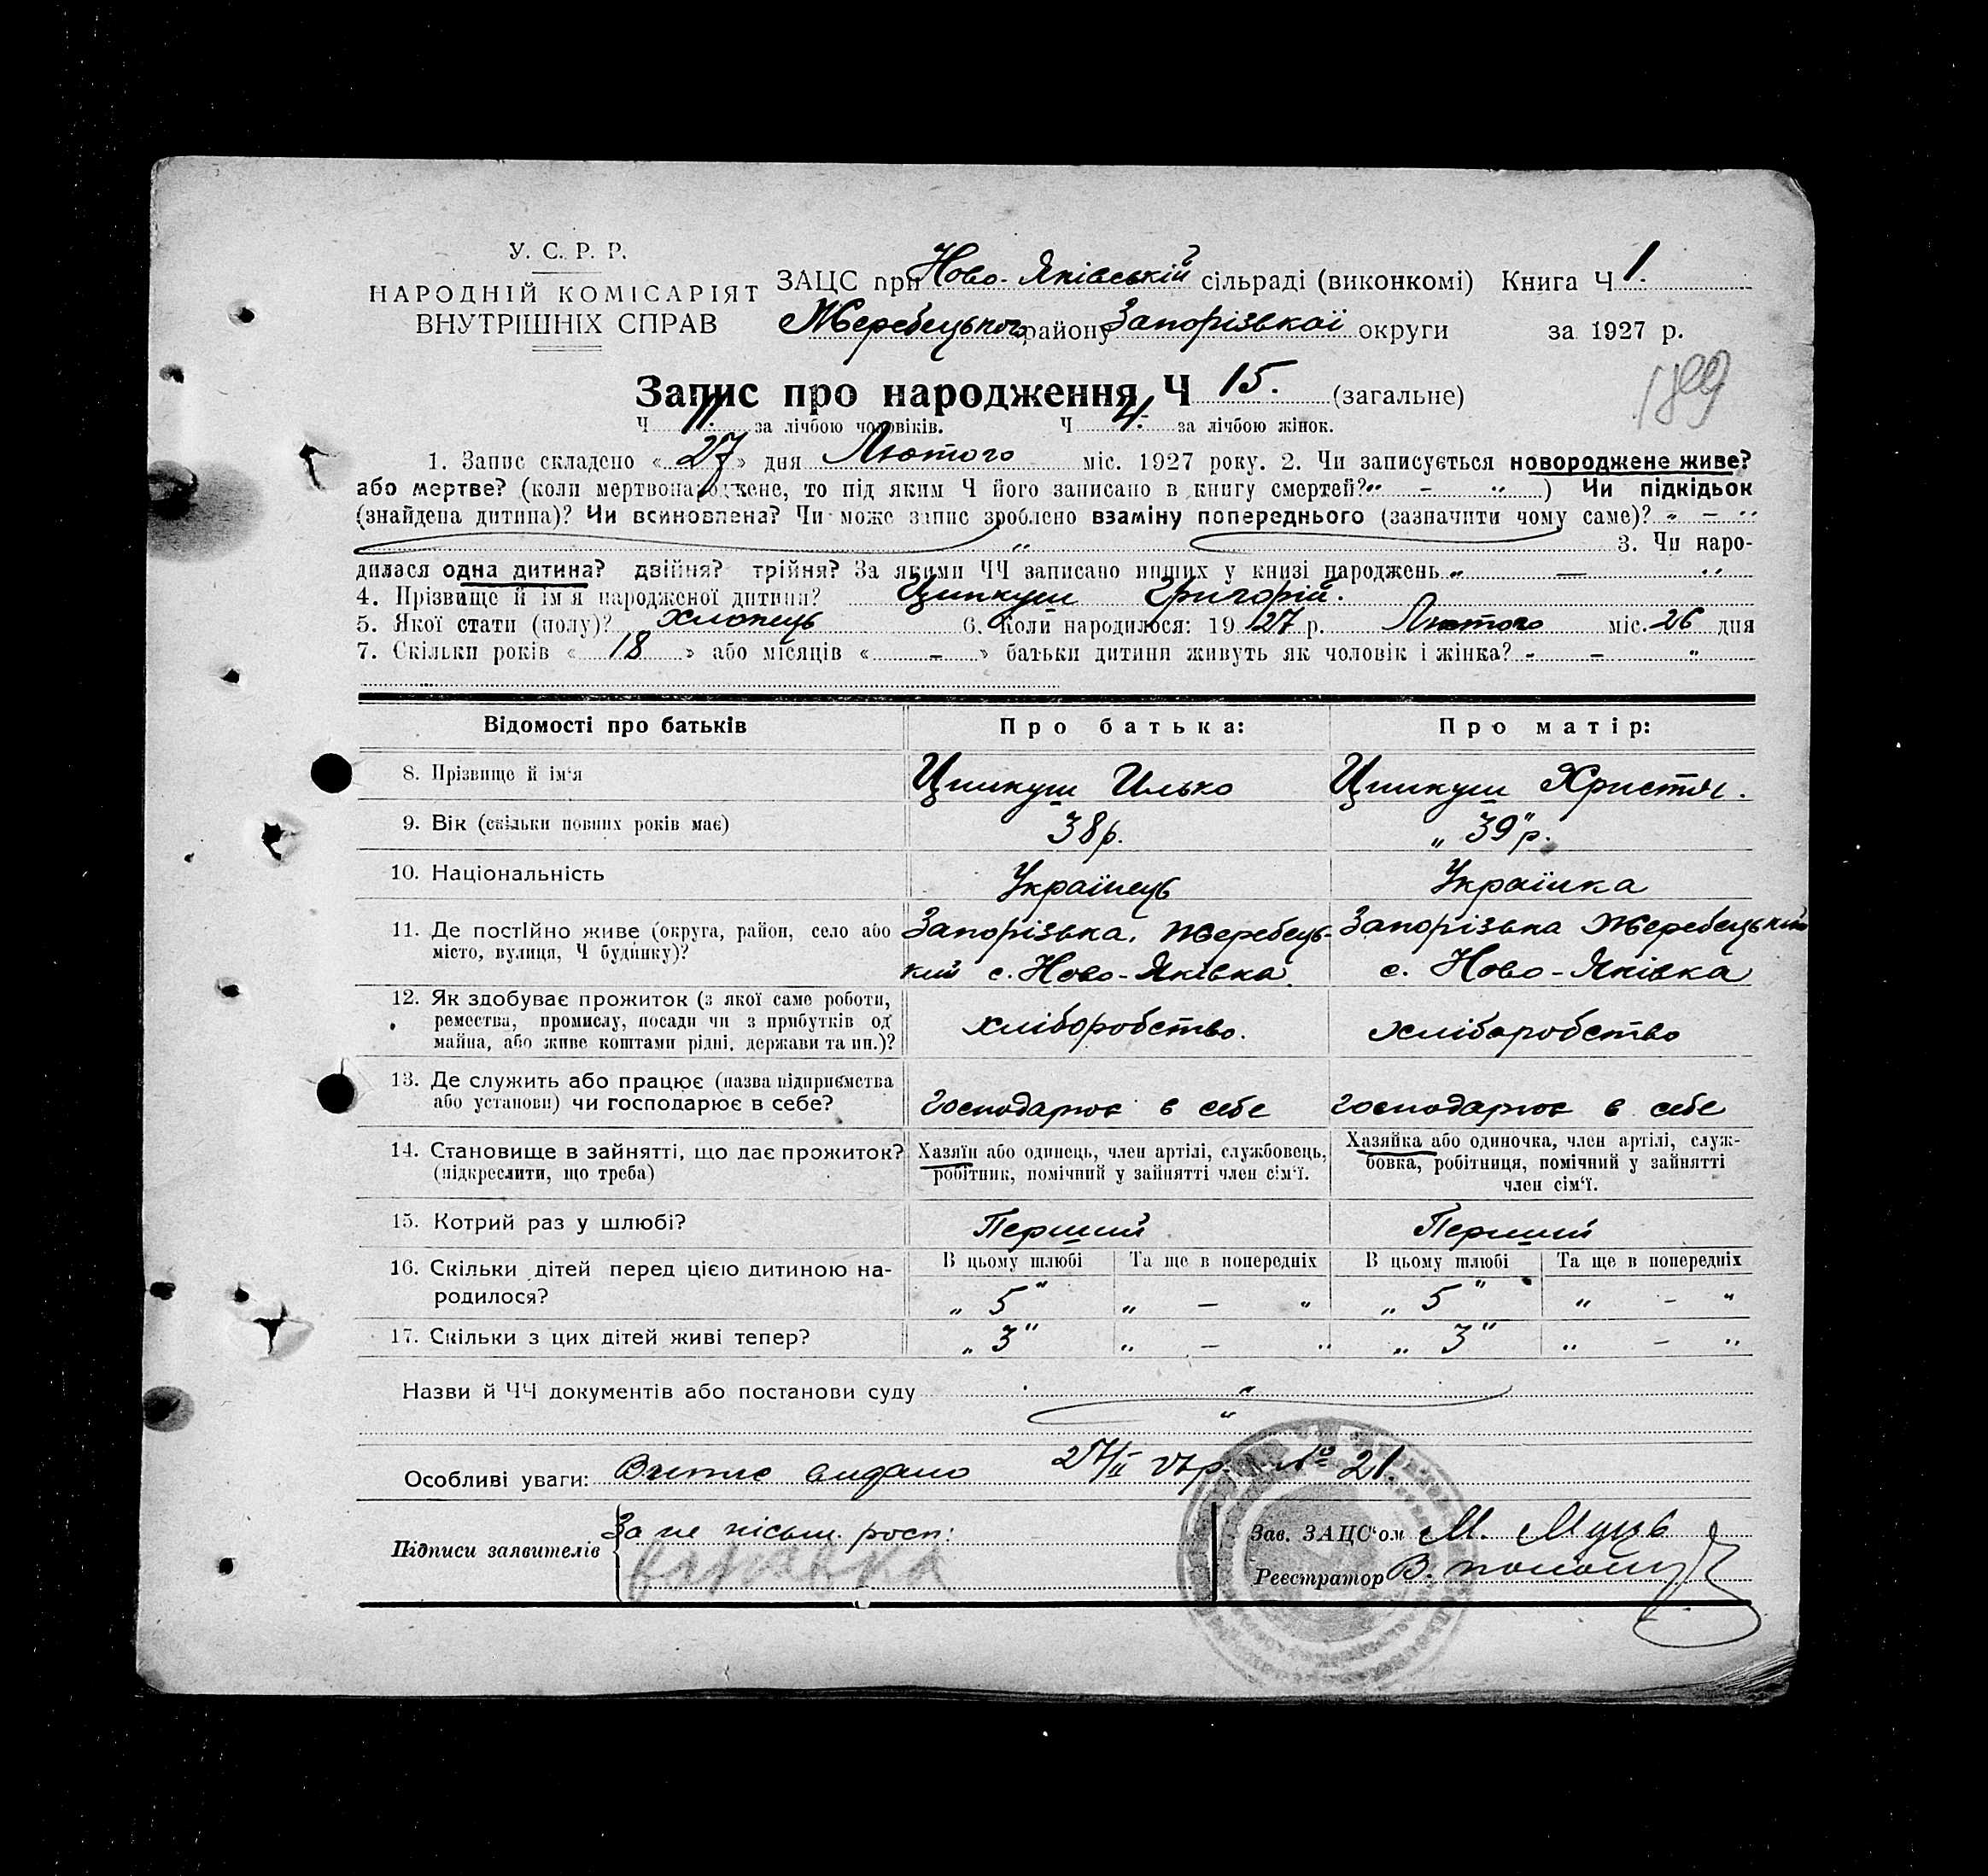 У. С. Р. Р.
НАРОДНІЙ КОМІСАРІЯТ
ВНУТРІШНІХ СПРАВ
ЗАЦС при Ново-Яківській сільраді (виконкомі) Книга Ч 1.
Жеребецького району Запорізької округи за 1927 р.
189
Запис про народження Ч 15. (загальне)
Ч 11. за лічбою чоловіків. Ч 4. за лічбою жінок.
1. Запис складено « 27 » дня Лютого міс. 1927 року. 2. Чи записується новороджене живе?
або мертве? (коли мертвонароджене, то під яким Ч його записано в книгу смертей? „ – „ ) Чи підкідьок
(знайдена дитина)? Чи всиновлена? Чи може запис зроблено взаміну попереднього (зазначити чому саме)? „ – „
„ 3. Чи наро-
дилася одна дитина? двійня? трійня? За якими ЧЧ записано инших у книзі народжень „ — „
4. Прізвище й ім'я народженої дитини? Ципкуш Григорій.
5. Якої стати (полу)? хлопець 6. Коли народилося: 19 27 р. Лютого міс. 26 дня
7. Скільки років « 18 » або місяців « – » батьки дитини живуть як чоловік і жінка? „ – „
Відомості про батьків Про батька: Про матір:
8. Прізвище й ім'я Ципкуш Илько Ципкуш Христя.
9. Вік (скільки повних років має) 38 р. „ 39 „ р.
10. Національність Українець Українка
11. Де постійно живе (округа, район, село або Запорізька, Жеребець- Запорізька Жеребецький
місто, вулиця, Ч будинку)? кий с. Ново-Яківка. с. Ново-Яківка
12. Як здобуває прожиток (з якої саме роботи,
ремества, промислу, посади чи з прибутків од хліборобство. хліборобство
майна, або живе коштами рідні, держави та ин.)?
13. Де служить або працює (назва підприємства
або установи) чи господарює в себе? господарює в себе господарює в себе
14. Становище в зайнятті, що дає прожиток? Хазяїн або одинець, член артілі, службовець, Хазяйка або одиночка, член артілі, служ-
(підкреслити, що треба) робітник, помічний у зайнятті член сім'ї. бовка, робітниця, помічний у зайнятті
член сім'ї.
15. Котрий раз у шлюбі? Перший Перший
16. Скільки дітей перед цією дитиною на- В цьому шлюбі Та ще в попередніх В цьому шлюбі Та ще в попередніх
родилося? „ 5 „ „ – „ „ 5 „ „ – „
17. Скільки з цих дітей живі тепер? „ 3 „ „ – „ „ 3 „ „ – „
Назви й ЧЧ документів або постанови суду „
„
Особливі уваги: Витис видано 27/II 27 р. № 21.
Підписи заявителів За не письм. росп:
Зав. ЗАЦС'ом М.
Реєстратор В.